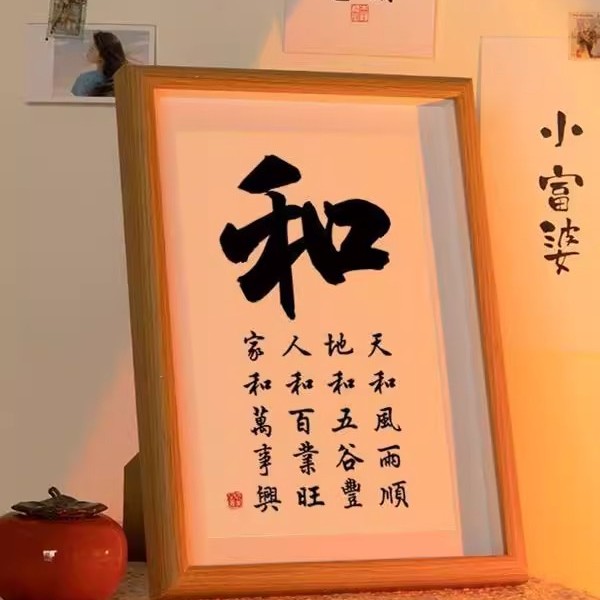 和
天和風雨順
地和五谷豐
人和百業旺
家和萬事興
小富婆